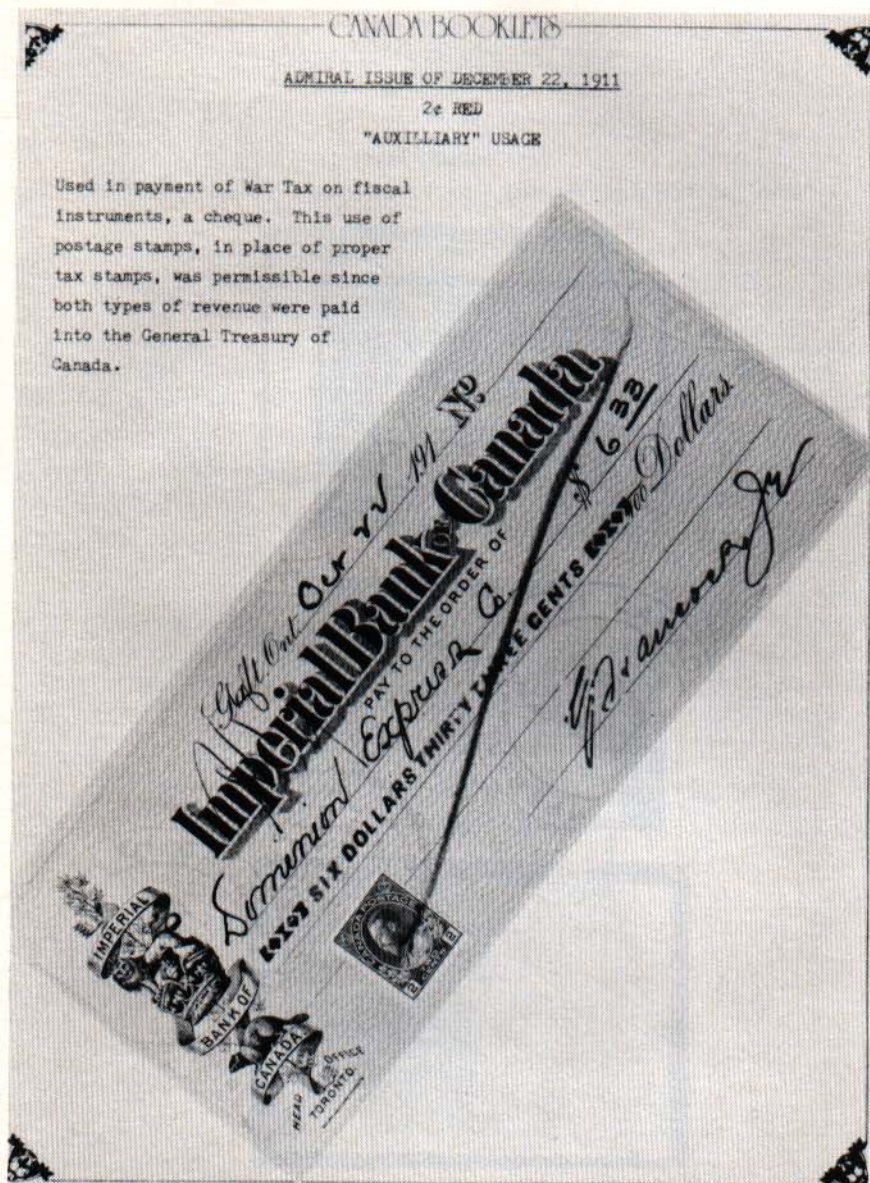 CANADA BOOKLETS
ADMIRAL ISSUE OF DECEMBER 22, 1911
2¢ RED
"AUXILLIARY" USAGE
Used in payment of War Tax on fiscal
instruments, a cheque. This use of
postage stamps, in place of proper
tax stamps, was permissible since
both types of revenue were paid
into the General Treasury of
Canada.
Ont. 191 No
Imperial Bank OF Canada.
PAY TO THE ORDER OF
Dominion Express Co. $ 6 33
SIX DOLLARS THIRTY THREE CENTS 100 Dollars
Jr
CANADA POSTAGE
2 CENTS 2
IMPERIAL
BANK OF
CANADA
HEAD OFFICE
TORONTO